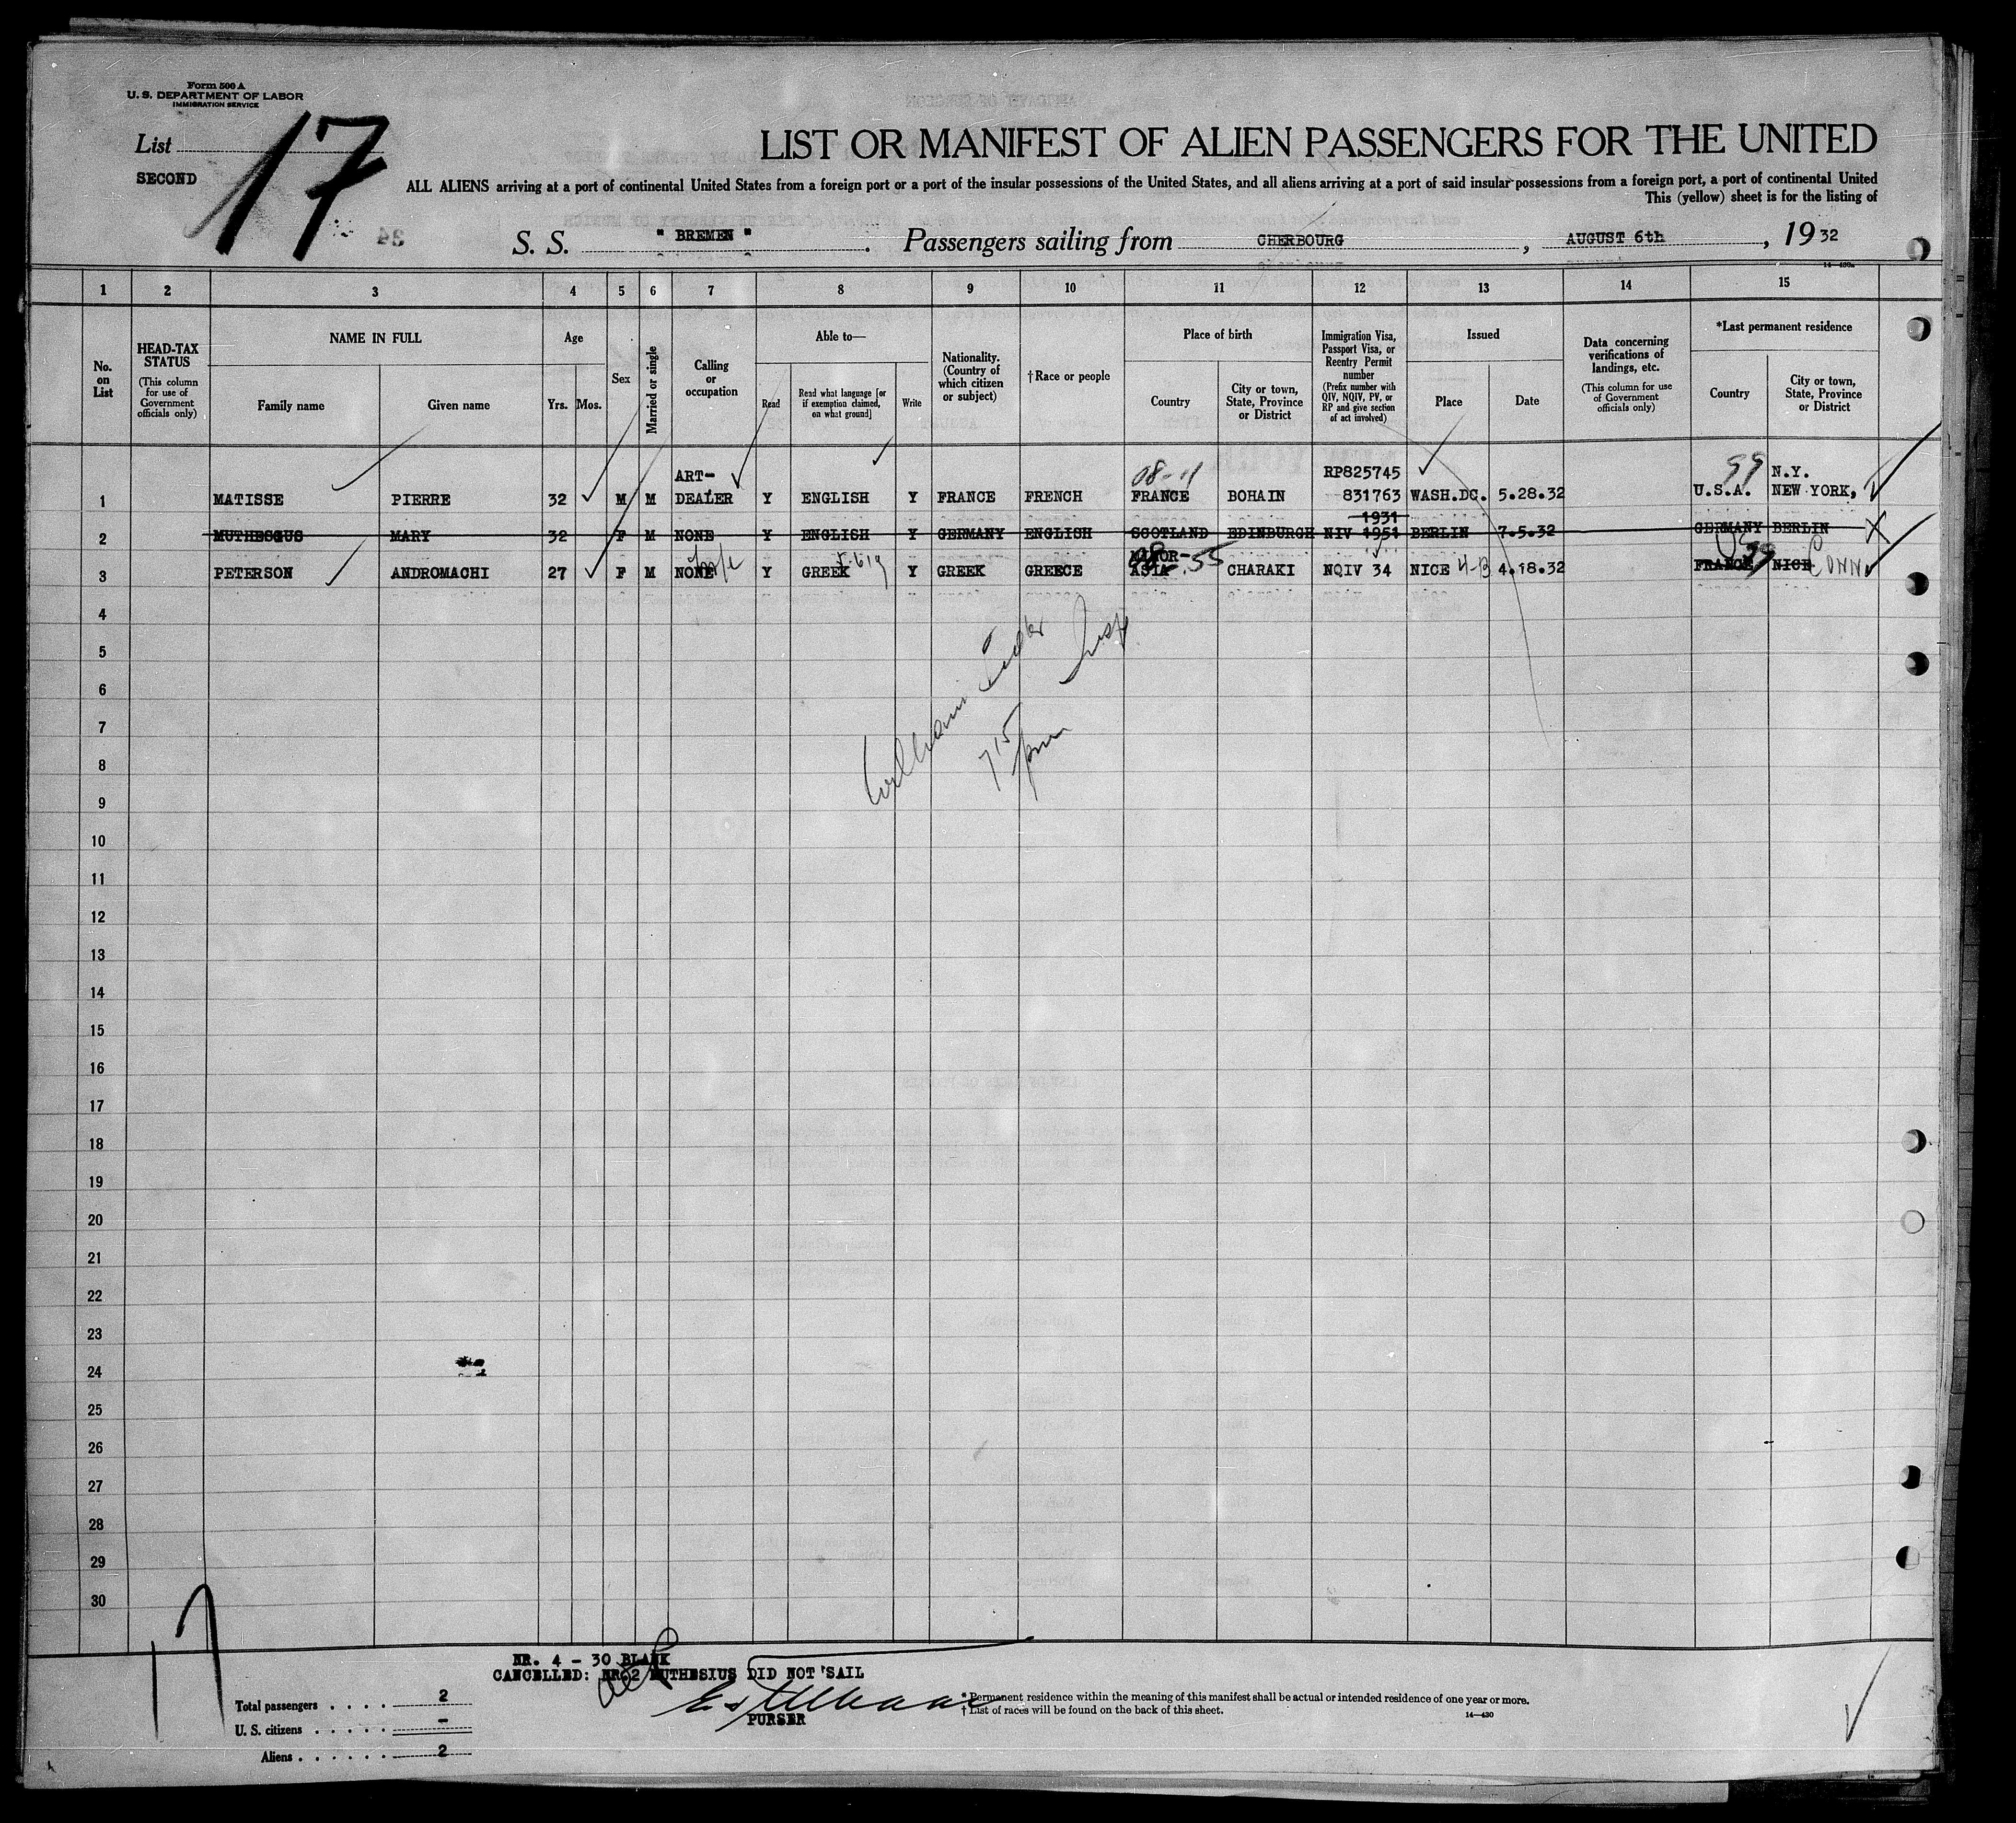 Form 500 A
U. S. DEPARTMENT OF LABOR
IMMIGRATION SERVICE
List
SECOND
17
LIST OR MANIFEST OF ALIEN PASSENGERS FOR THE UNITED
ALL ALIENS arriving at a port of continental United States from a foreign port or a port of the insular possessions of the United States, and all aliens arriving at a port of said insular possessions from a foreign port, a port of continental United
This (yellow) sheet is for the listing of
S. S. " BREMEN " . Passengers sailing from CHERBOURG , AUGUST 6th , 19 32
1 2 3 4 5 6 7 8 9 10 11 12 13 14 15
No. on List
HEAD-TAX STATUS (This column for use of Government officials only)
NAME IN FULL
Family name Given name
Age
Yrs. Mos.
Sex
Married or single
Calling or occupation
Able to—
Read
Read what language [or if exemption claimed, on what ground]
Write
Nationality. (Country of which citizen or subject)
†Race or people
Place of birth
Country
City or town, State, Province or District
Immigration Visa, Passport Visa, or Reentry Permit number (Prefix number with QIV, NQIV, PV, or RP and give section of act involved)
Issued
Place Date
Data concerning verifications of landings, etc. (This column for use of Government officials only)
*Last permanent residence
Country
City or town, State, Province or District
ART- 08-11 RP825745 99 N.Y.
1 MATISSE PIERRE 32 M M DEALER Y ENGLISH Y FRANCE FRENCH FRANCE BOHAIN 831763 WASH.DC. 5.28.32 U.S.A. NEW YORK,
1931
2 MUTHESGUS MARY 32 F M NONE Y ENGLISH Y GERMANY ENGLISH SCOTLAND EDINBURGH NIV 1951 BERLIN 7.5.32 GERMANY BERLIN X
MINOR- 55 US 99
3 PETERSON ANDROMACHI 27 F M NONE Y GREEK Y GREEK GREECE ASIA CHARAKI NQIV 34 NICE 4-B 4.18.32 FRANCE NICE CONN
4
5
6
William Insp
7
715 pm
8
9
10
11
12
13
14
15
16
17
18
19
20
21
22
23
24
25
26
27
28
29
30
17
NR. 4 - 30 BLANK
CANCELLED: NR.2 MUTHESIUS DID NOT SAIL
PURSER
Total passengers . . . . 2
U. S. citizens . . . . . -
Aliens . . . . . . 2
* Permanent residence within the meaning of this manifest shall be actual or intended residence of one year or more.
† List of races will be found on the back of this sheet.
14—430